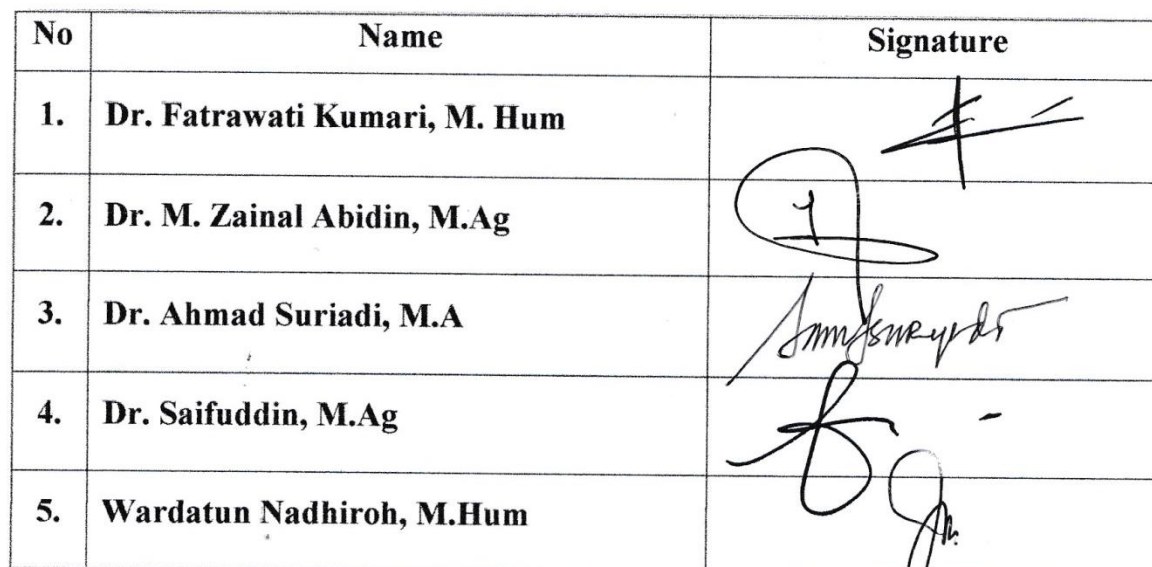 No Name Signature
1. Dr. Fatrawati Kumari, M. Hum
2. Dr. M. Zainal Abidin, M.Ag
3. Dr. Ahmad Suriadi, M.A
4. Dr. Saifuddin, M.Ag
5. Wardatun Nadhiroh, M.Hum